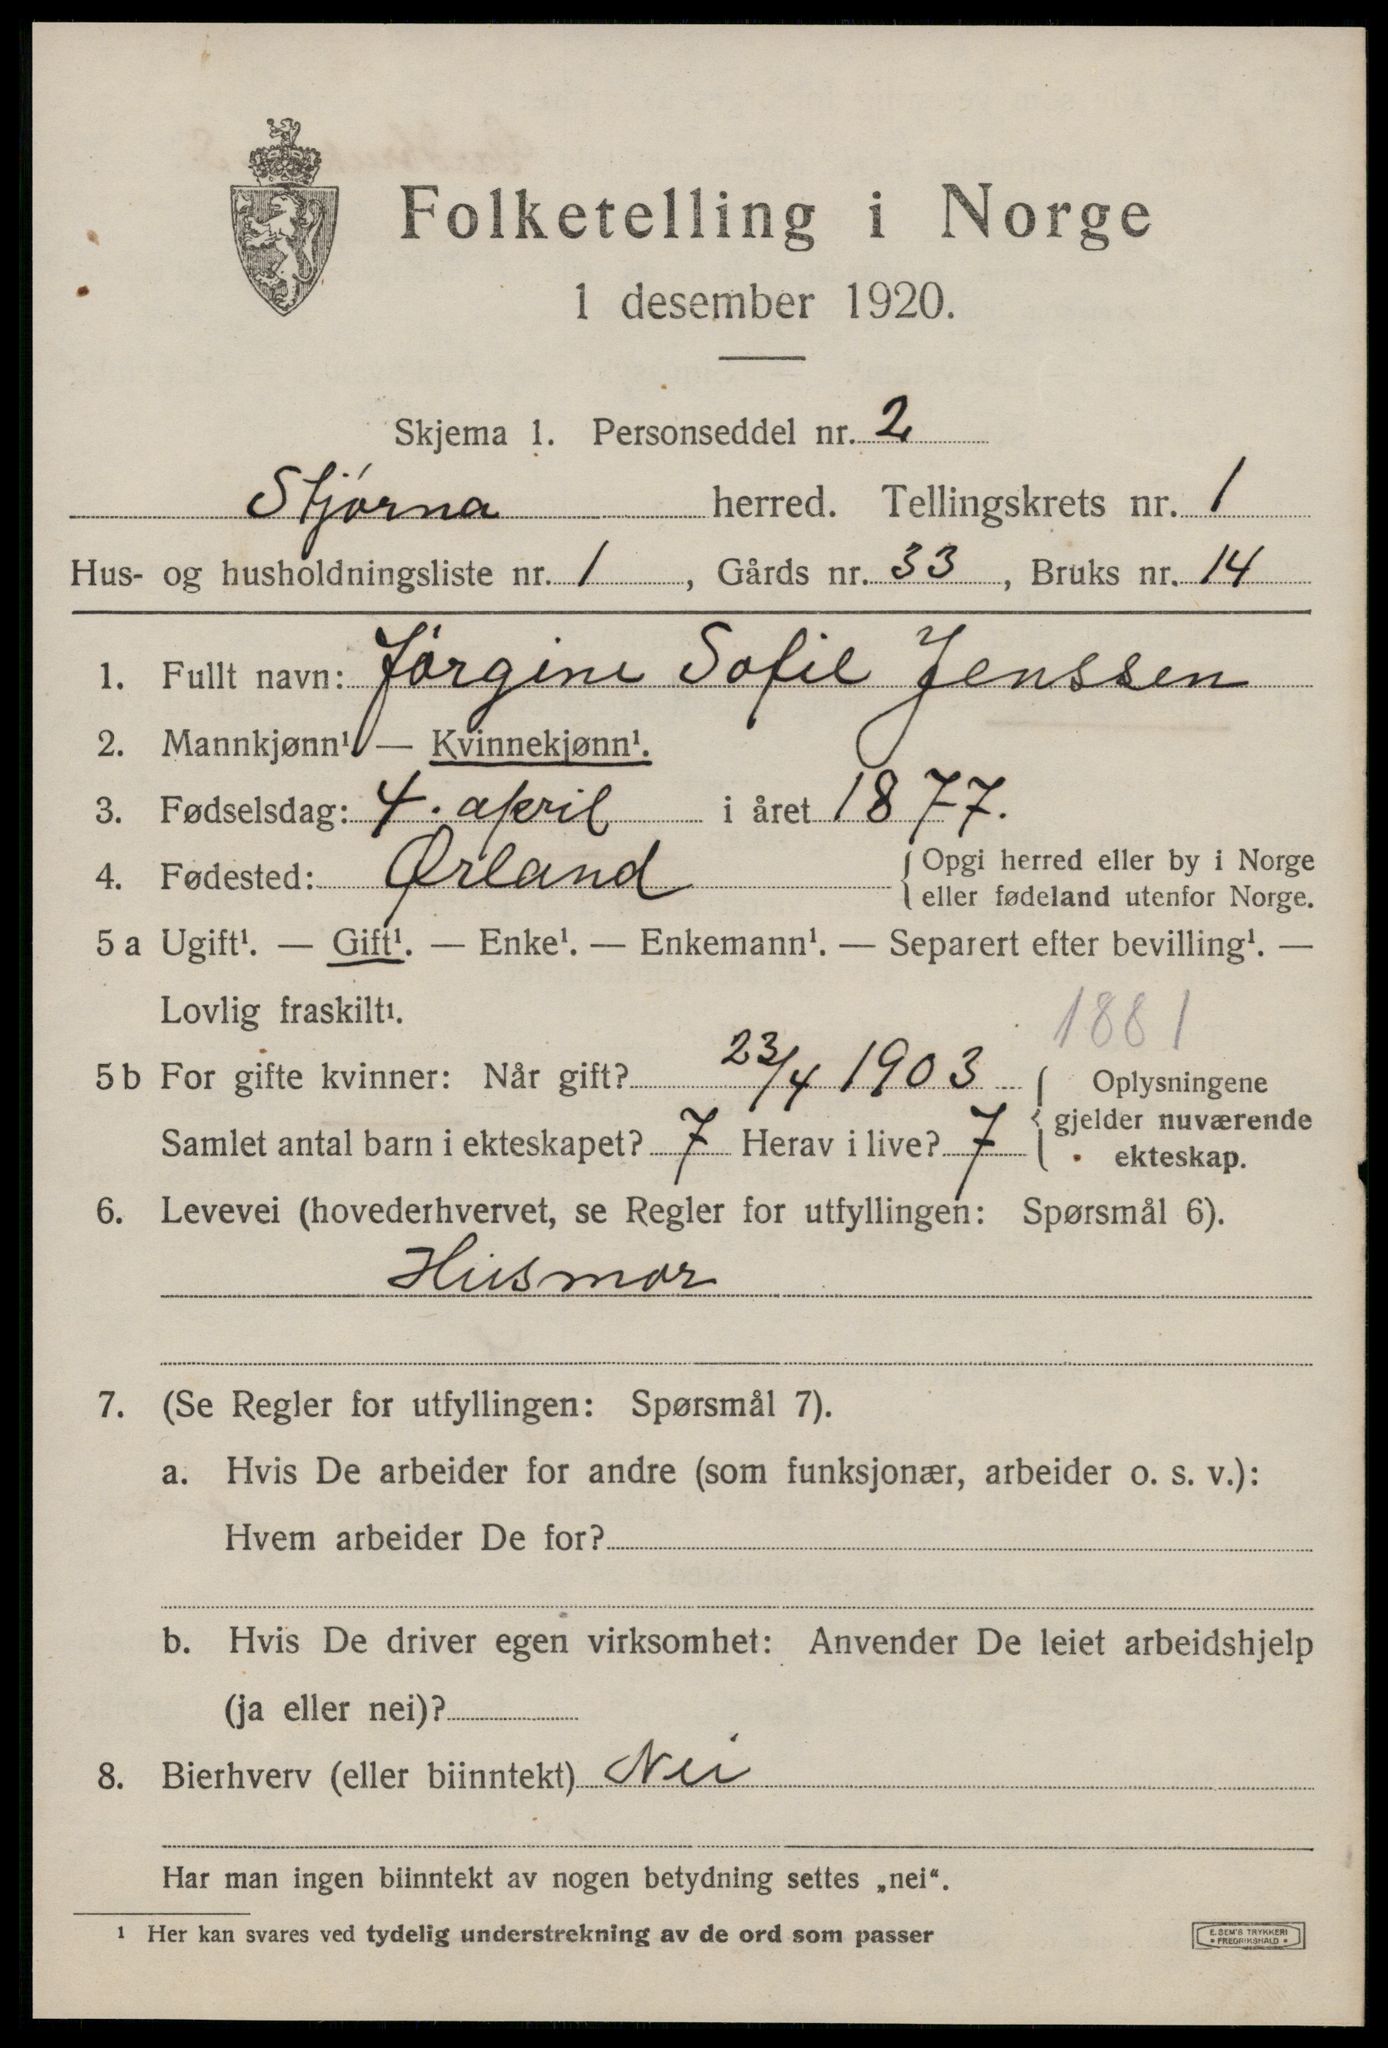 Folketelling i Norge
1 desember 1920.
Skjema 1. Personseddel nr. 2
Stjørna herred. Tellingskrets nr. 1
Hus- og husholdningsliste nr. 1, Gårds nr. 33, Bruks nr. 14
1. Fullt navn: Jørgine Sofie Jenssen
2. Mannkjønn¹. — Kvinnekjønn¹.
3. Fødselsdag: 4. april i året 1877.
4. Fødested: Ørland { Opgi herred eller by i Norge
eller fødeland utenfor Norge.
5 a Ugift¹. — Gift¹. — Enke¹. — Enkemann¹. — Separert efter bevilling¹. —
Lovlig fraskilt¹.
1881
5 b For gifte kvinner: Når gift? 23/4 1903 { Oplysningene
Samlet antal barn i ekteskapet? 7 Herav i live? 7 gjelder nuværende
ekteskap.
6. Levevei (hovederhvervet, se Regler for utfyllingen: Spørsmål 6).
Husmor
7. (Se Regler for utfyllingen: Spørsmål 7).
a. Hvis De arbeider for andre (som funksjonær, arbeider o. s. v.):
Hvem arbeider De for?
b. Hvis De driver egen virksomhet: Anvender De leiet arbeidshjelp
(ja eller nei)?
8. Bierhverv (eller biinntekt) Nei
Har man ingen biinntekt av nogen betydning settes „nei“.
¹ Her kan svares ved tydelig understrekning av de ord som passer
E. SEM'S TRYKKERI
• FREDRIKSHALD •